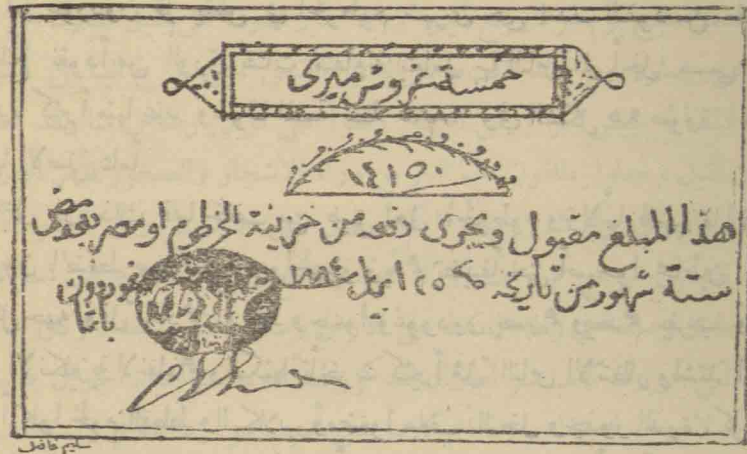 خمسة غروش ميرى
١٤١٥٠
هذا المبلغ مقبول ويجرى دفعه من خزينة الخرطوم او مصر بعد مضى
ستة شهور من تاريخه ٢٥ ابريل سنة ١٨٨٤
غوردون
باشا
سليم فاضل